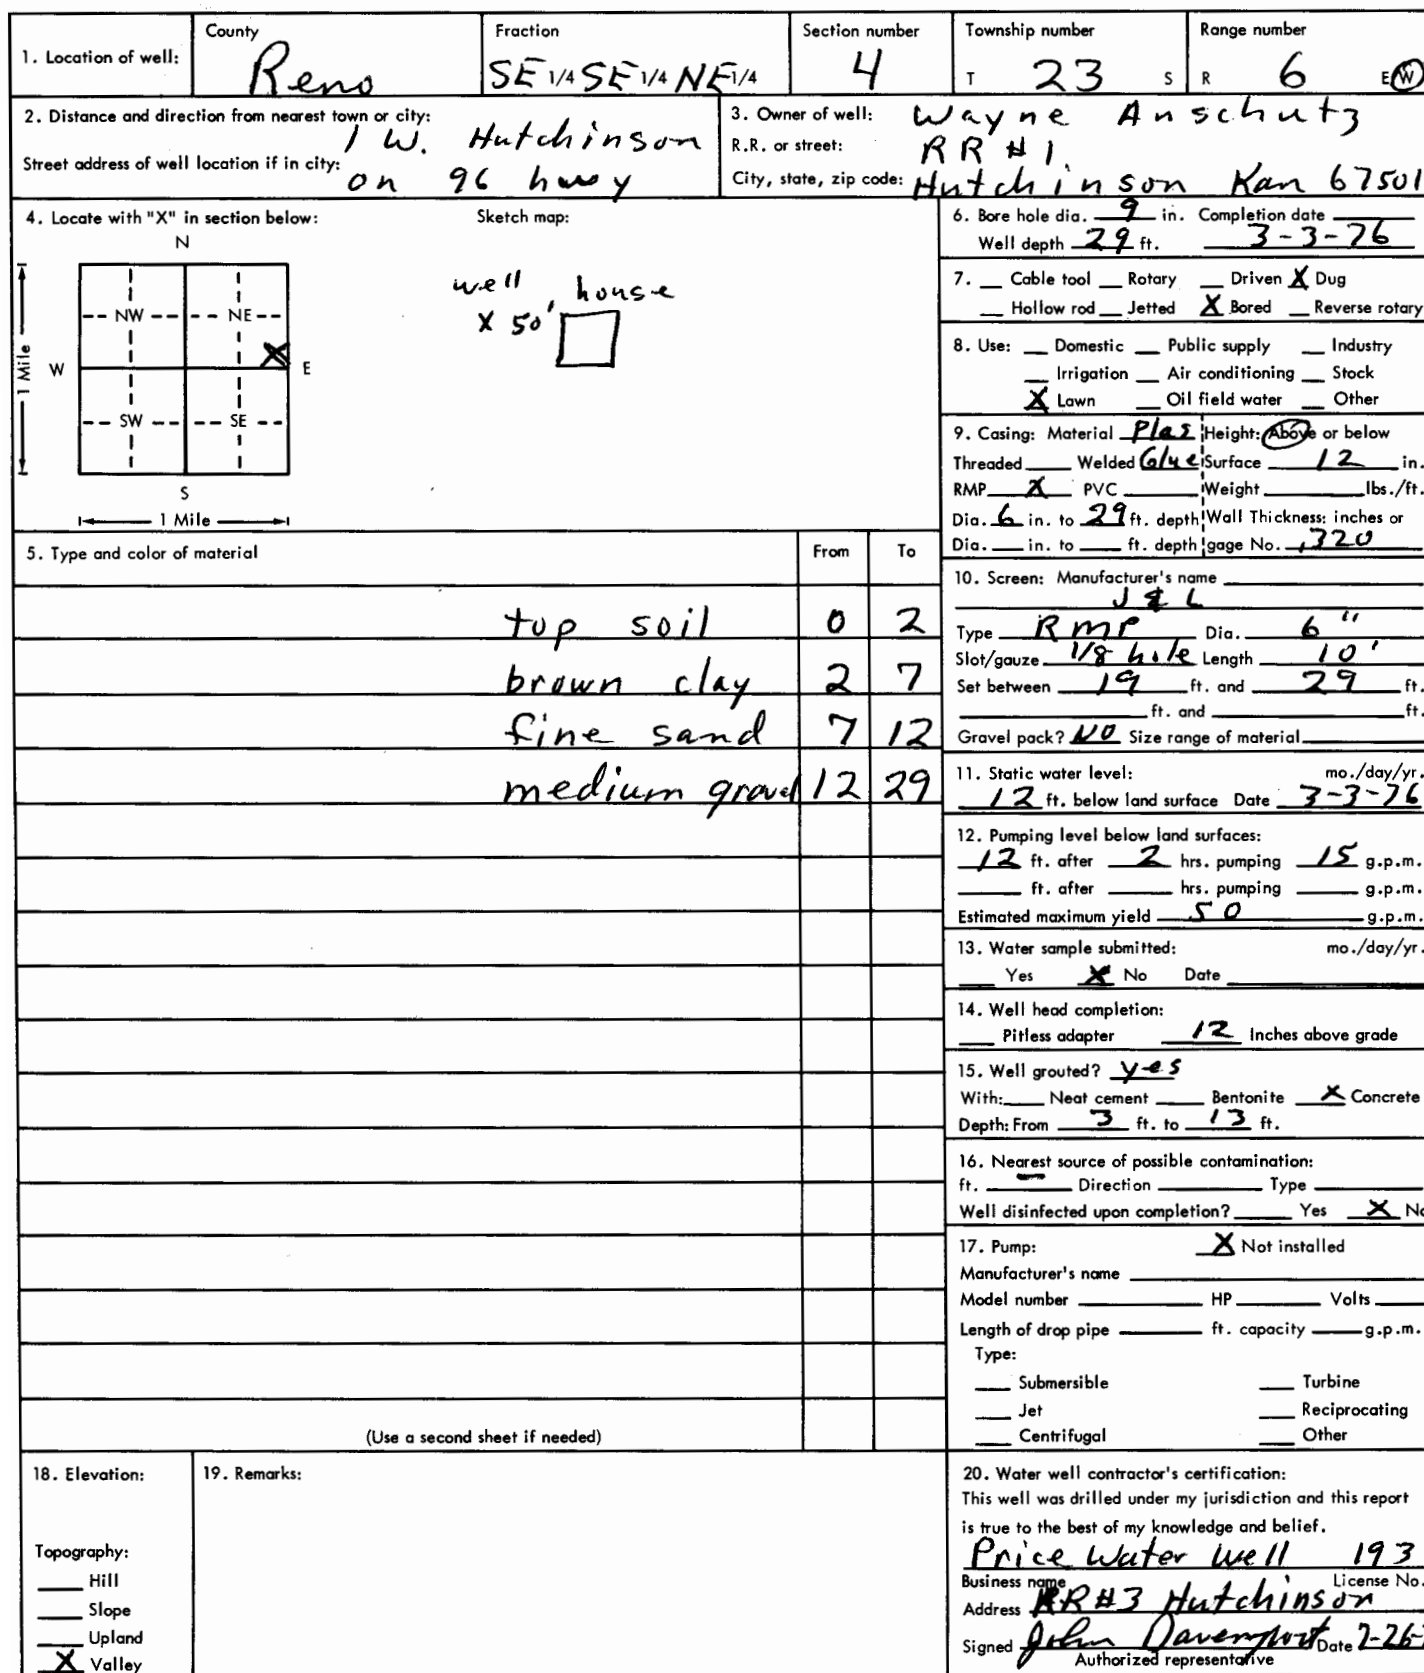 1. Location of well: County Reno Fraction SE 1/4 SE 1/4 NE 1/4 Section number 4 Township number T 23 S Range number R 6 E W
2. Distance and direction from nearest town or city: 1 W. Hutchinson
Street address of well location if in city: on 96 hwy
3. Owner of well: Wayne Anschutz
R.R. or street: RR #1.
City, state, zip code: Hutchinson Kan 67501
4. Locate with "X" in section below:
Sketch map:
N
NW NE
W X E
SW SE
S
1 Mile
1 Mile
well house
X 50'
5. Type and color of material From To
top soil 0 2
brown clay 2 7
fine sand 7 12
medium gravel 12 29
(Use a second sheet if needed)
6. Bore hole dia. 9 in. Completion date
Well depth 29 ft. 3-3-76
7. Cable tool Rotary Driven X Dug
Hollow rod Jetted X Bored Reverse rotary
8. Use: Domestic Public supply Industry
Irrigation Air conditioning Stock
X Lawn Oil field water Other
9. Casing: Material Plas Height: Above or below
Threaded Welded Glue Surface 12 in.
RMP X PVC Weight lbs./ft.
Dia. 6 in. to 29 ft. depth Wall Thickness: inches or
Dia. in. to ft. depth gage No. .320
10. Screen: Manufacturer's name
J & L
Type RMP Dia. 6"
Slot/gauze 1/8 hole Length 10'
Set between 19 ft. and 29 ft.
ft. and ft.
Gravel pack? NO Size range of material
11. Static water level: mo./day/yr.
12 ft. below land surface Date 3-3-76
12. Pumping level below land surfaces:
12 ft. after 2 hrs. pumping 15 g.p.m.
ft. after hrs. pumping g.p.m.
Estimated maximum yield 50 g.p.m.
13. Water sample submitted: mo./day/yr.
Yes X No Date
14. Well head completion:
Pitless adapter 12 Inches above grade
15. Well grouted? yes
With: Neat cement Bentonite X Concrete
Depth: From 3 ft. to 13 ft.
16. Nearest source of possible contamination:
ft. – Direction Type
Well disinfected upon completion? Yes X No
17. Pump: X Not installed
Manufacturer's name
Model number HP Volts
Length of drop pipe ft. capacity g.p.m.
Type:
Submersible Turbine
Jet Reciprocating
Centrifugal Other
18. Elevation:
Topography:
Hill
Slope
Upland
X Valley
19. Remarks:
20. Water well contractor's certification:
This well was drilled under my jurisdiction and this report
is true to the best of my knowledge and belief.
Price Water Well 193
Business name License No.
Address RR #3 Hutchinson
Signed John Davenport Date
Authorized representative